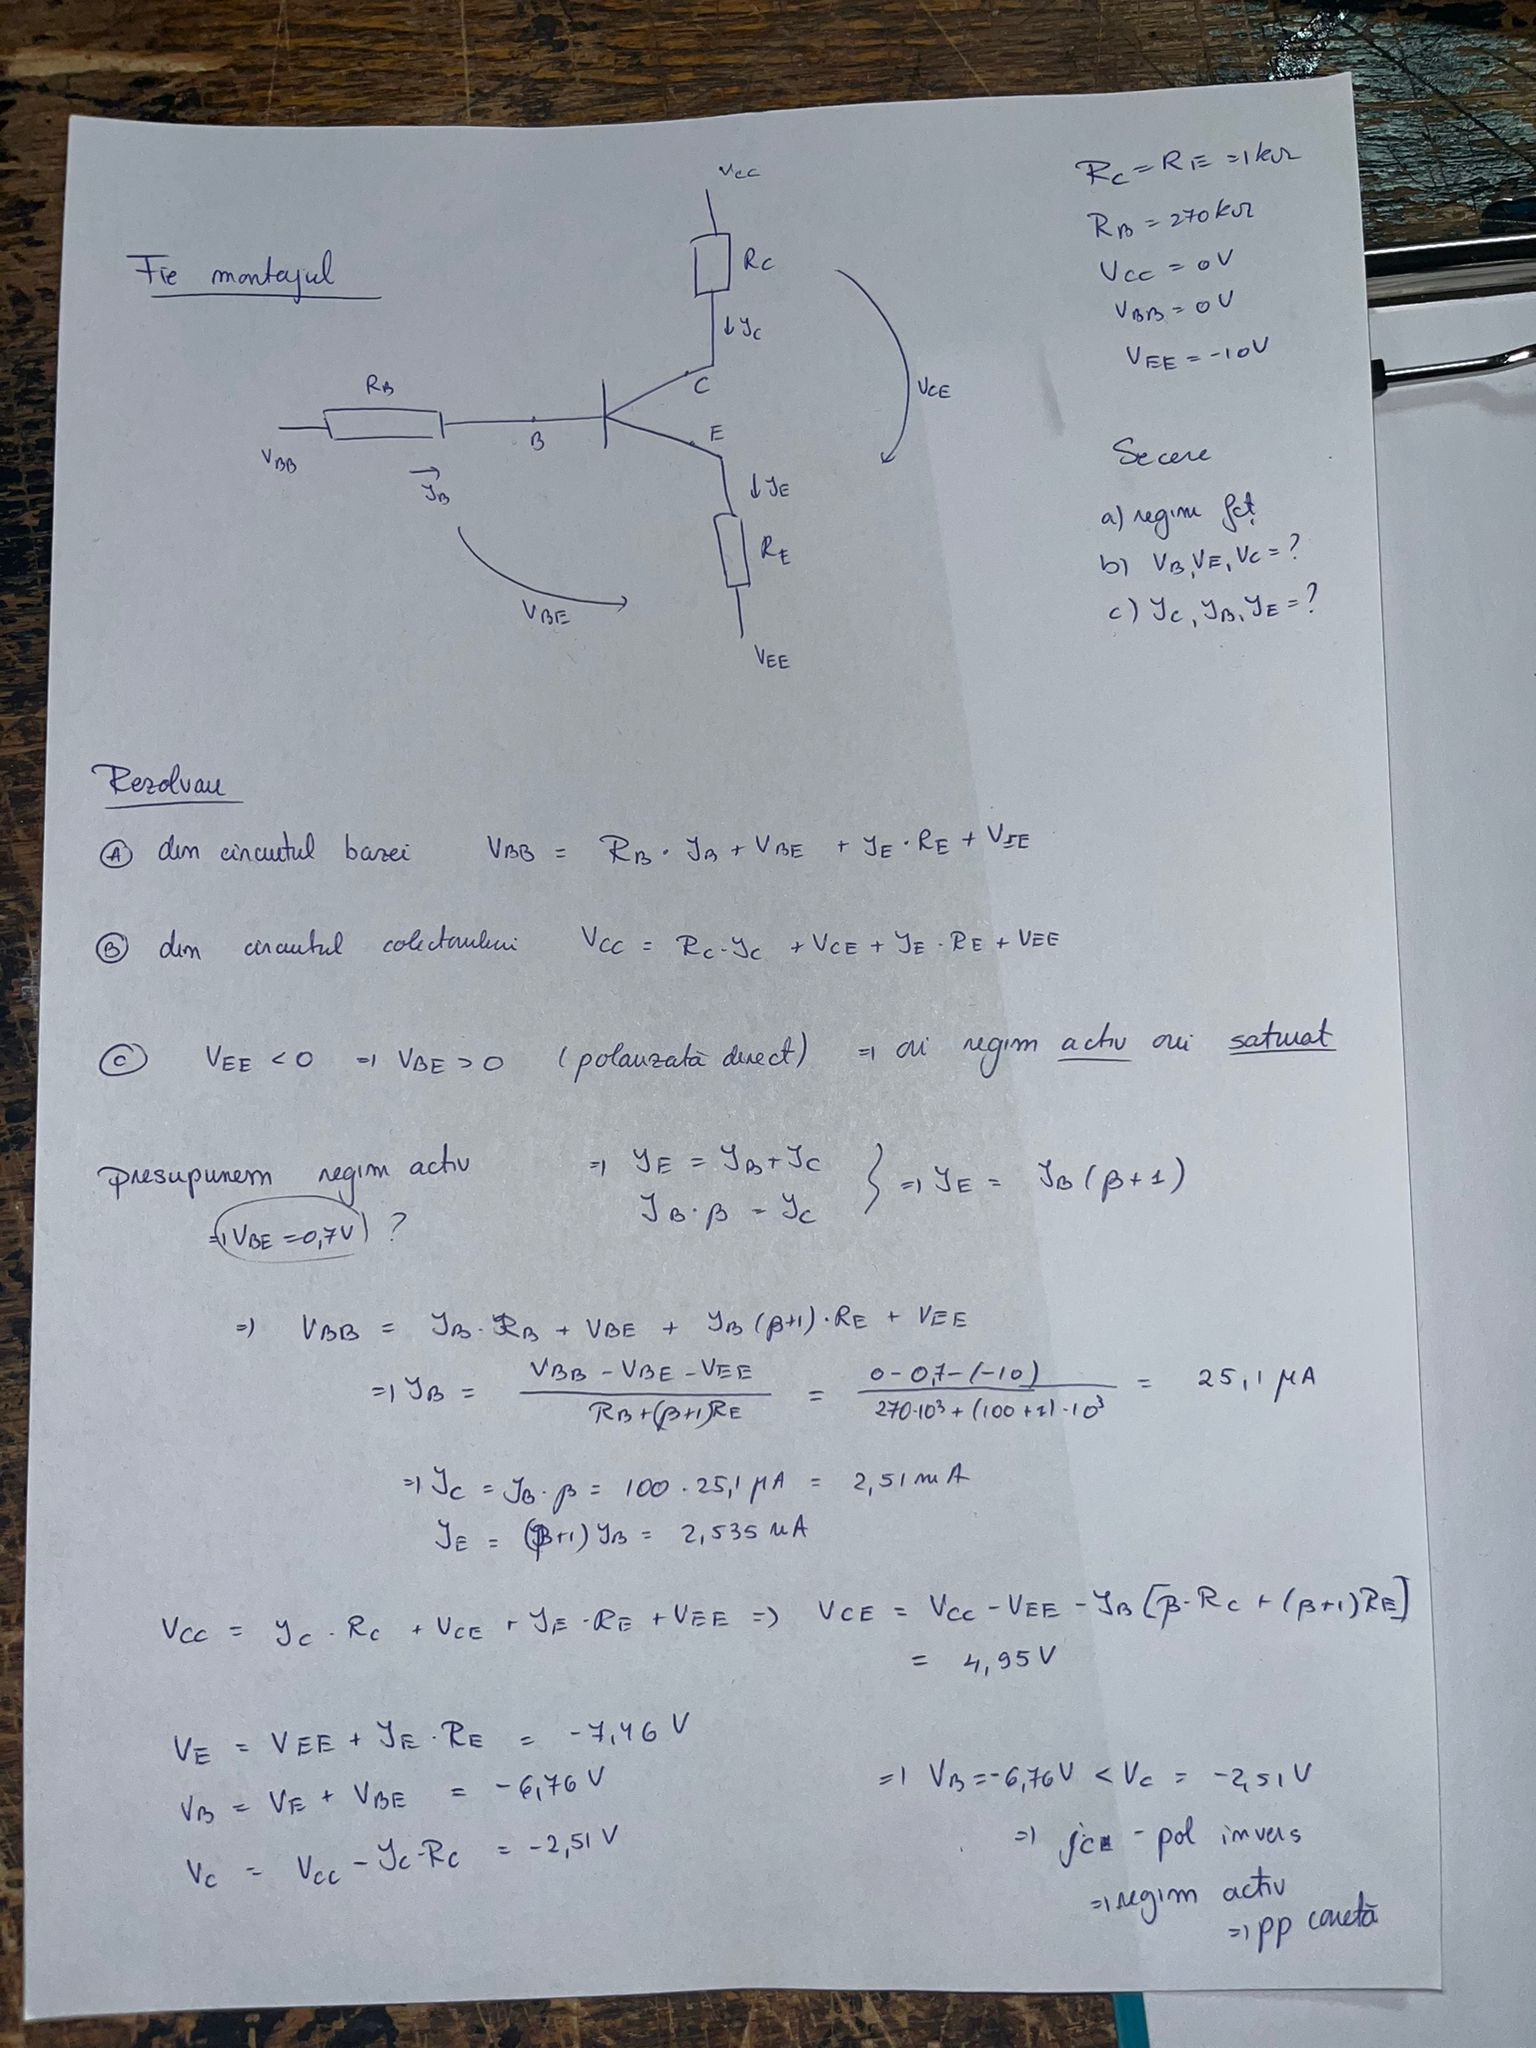 VCC
RC = RE = 1kΩ
RB = 270kΩ
VCC = 0V
VBB = 0V
VEE = -10V
Fie montajul
RC
↓ IC
C
VCE
RB
B
E
VBB
→
IB
↓ IE
RE
VBE
VEE
Se cere
a) regim fct
b) VB, VE, VC = ?
c) IC, IB, IE = ?
Rezolvare
(A) din circuitul bazei VBB = RB · IB + VBE + IE · RE + VEE
(B) din circuitul colectorului VCC = RC · IC + VCE + IE · RE + VEE
(C) VEE < 0 => VBE > 0 (polarizată direct) => ori regim activ ori saturat
Presupunem regim activ => IE = IB + IC } => IE = IB (β+1)
=> VBE = 0,7V ? IB · β = IC
=> VBB = IB · RB + VBE + IB (β+1) · RE + VEE
=> IB = (VBB - VBE - VEE) / (RB + (β+1)RE) = (0 - 0,7 - (-10)) / (270·10³ + (100+1)·10³) = 25,1 μA
=> IC = IB · β = 100 · 25,1 μA = 2,51 mA
IE = (β+1) IB = 2,535 mA
VCC = IC · RC + VCE + IE · RE + VEE => VCE = VCC - VEE - IB [β · RC + (β+1) RE]
= 4,95 V
VE = VEE + IE · RE = -7,46 V
VB = VE + VBE = -6,76 V
VC = VCC - IC · RC = -2,51 V
=> VB = -6,76V < VC = -2,51 V
=> jc - pol invers
=> regim activ
=> pp corectă